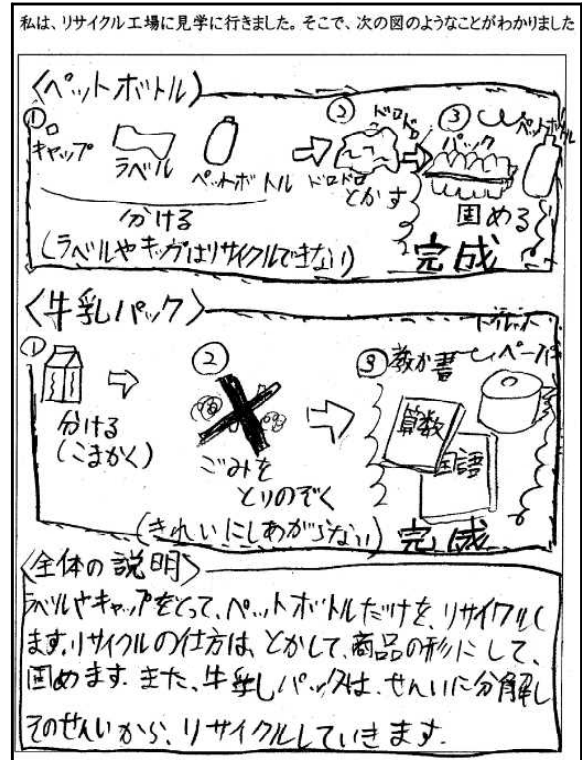 私は、リサイクル工場に見学に行きました。そこで、次の図のようなことがわかりました
〈ペットボトル〉
①
キャップ
ラベル
ペットボトル
分ける
(ラベルやキャップはリサイクルできない)
②
ドロドロ
ドロドロ
とかす
③
パック
ペットボトル
固める
完成
〈牛乳パック〉
①
分ける
(こまかく)
②
ごみを
とりのぞく
(きれいにしあがらない)
③教か書
トイレット
ペーパー
算数
国語
完成
〈全体の説明〉
ラベルやキャップをとって、ペットボトルだけを、リサイクルし
ます。リサイクルの仕方は、とかして、商品の形にして、
固めます。また、牛乳パックは、せんいに分解し
そのせんいから、リサイクルしていきます。